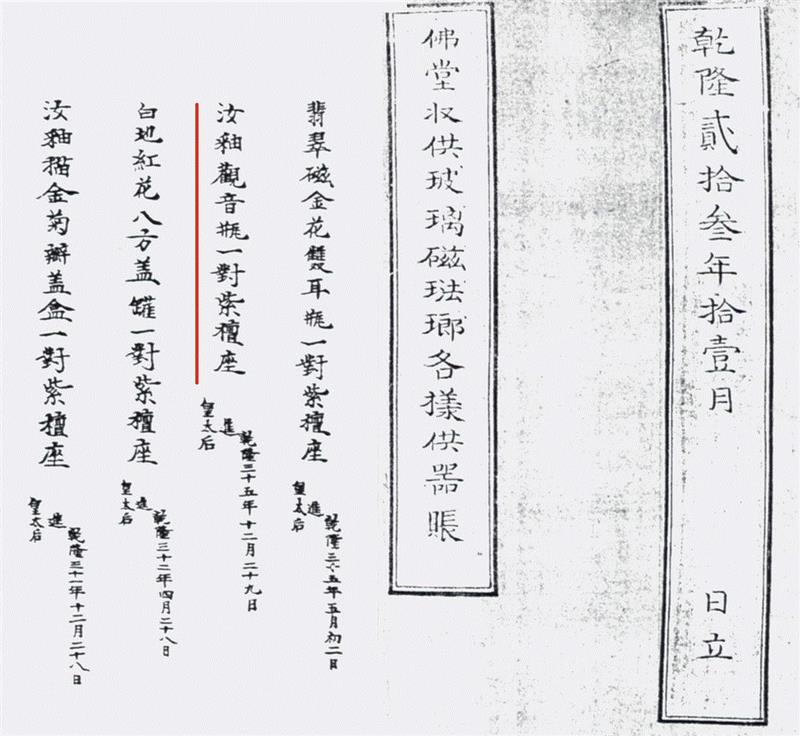 乾隆貳拾叁年拾壹月 日立
佛堂収供玻璃磁琺瑯各樣供器賬
翡翠磁金花雙耳瓶一對紫檀座
乾隆三十五年五月初二日
進
皇太后
汝釉觀音瓶一對紫檀座
乾隆三十五年十二月二十九日
進
皇太后
白地紅花八方盖罐一對紫檀座
乾隆三十二年四月二十八日
進
皇太后
汝釉描金菊瓣盖盒一對紫檀座
乾隆三十一年十二月二十八日
進
皇太后